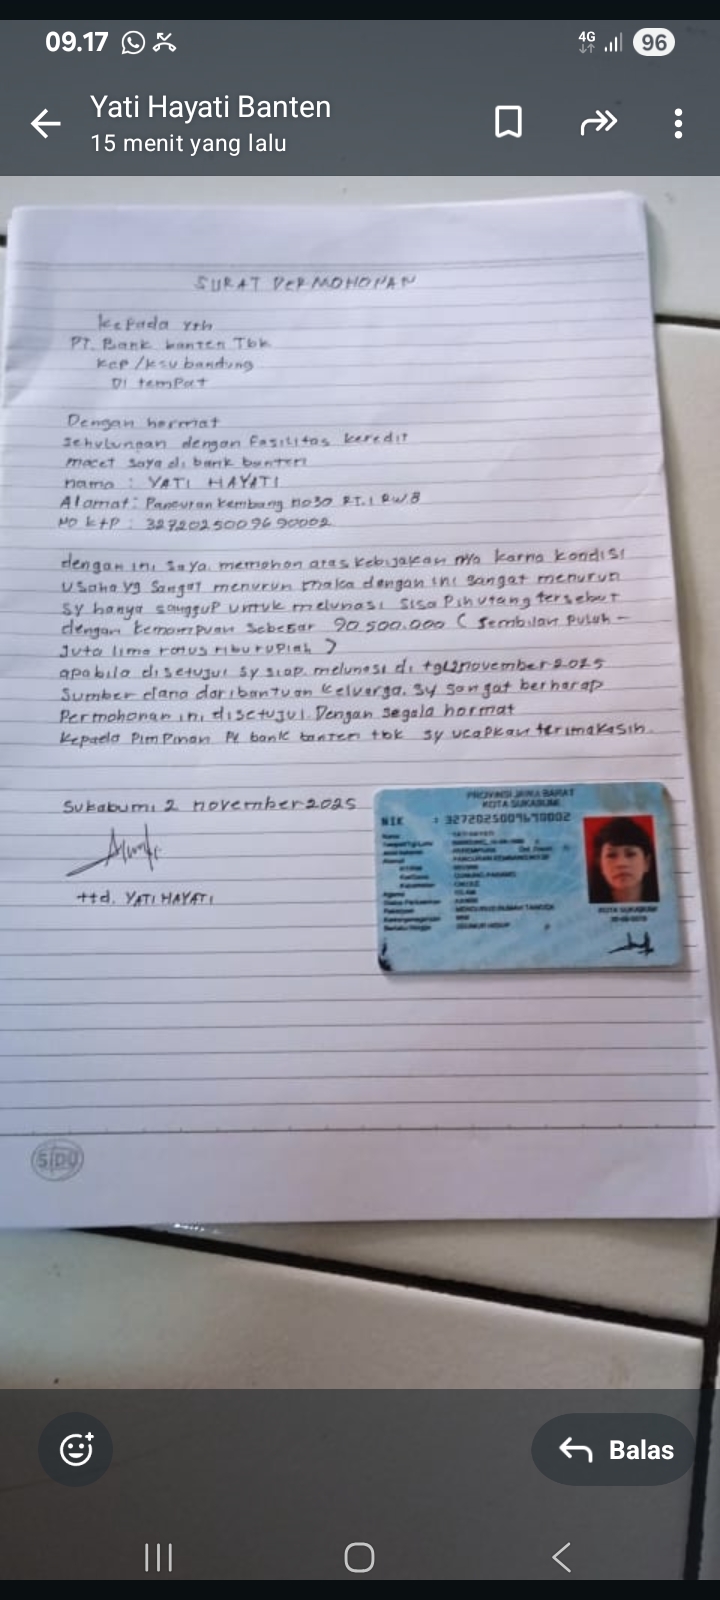 09.17
4G
96
Yati Hayati Banten
15 menit yang lalu
SURAT PERMOHONAN
kepada yth
PT. Bank banten Tbk
kcp/ksu bandung
Di tempat
Dengan hormat
sehubungan dengan fasilitas keredit
macet saya di bank banten
nama : YATI HAYATI
Alamat : Pancuran kembang no30 RT.1 RW8
NO ktp : 3272025009690002
dengan ini saya memohon atas kebijakan nya karna kondisi
usaha yg sangat menurun maka dengan ini sangat menurun
sy hanya sanggup untuk melunasi sisa pihutang tersebut
dengan kemampuan sebesar 90 500.000 ( sembilan puluh -
juta lima ratus riburupiah )
apabila disetujui sy siap melunasi di tgl2november2025
Sumber dana daribantuan keluarga. sy sangat berharap
Permohonan ini disetujui. Dengan segala hormat
kepada Pimpinan Pt bank banten tbk sy ucapkan terimakasih.
Sukabumi 2 november2025
ttd. YATI HAYATI
PROVINSI JAWA BARAT
KOTA SUKABUMI
NIK : 3272025009690002
KOTA SUKABUMI
SIDU
Balas